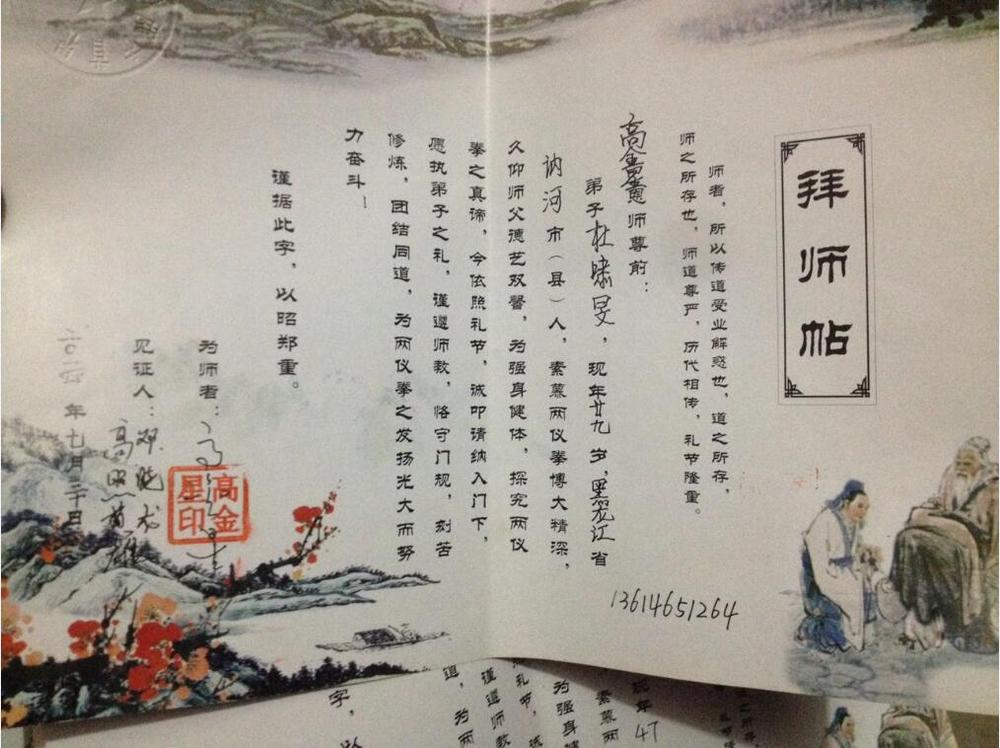 拜师帖
师者，所以传道受业解惑也，道之所存，
师之所存也，师道尊严，历代相传，礼节隆重。
高金 师尊前：
弟子杜啸旻，现年廿九岁，黑龙江省
讷河市（县）人，素慕两仪拳博大精深，
久仰师父德艺双馨，为强身健体，探究两仪
拳之真谛，今依照礼节，诚叩请纳入门下，
愿执弟子之礼，谨遵师教，恪守门规，刻苦
修炼，团结同道，为两仪拳之发扬光大而努
力奋斗！
谨据此字，以昭郑重。
为师者：高
高金星印
见证人：
年七月三十日
13614651264
之所存
现年47
素慕两
为强身
礼节，诚
谨遵师教
道，为两
字，以